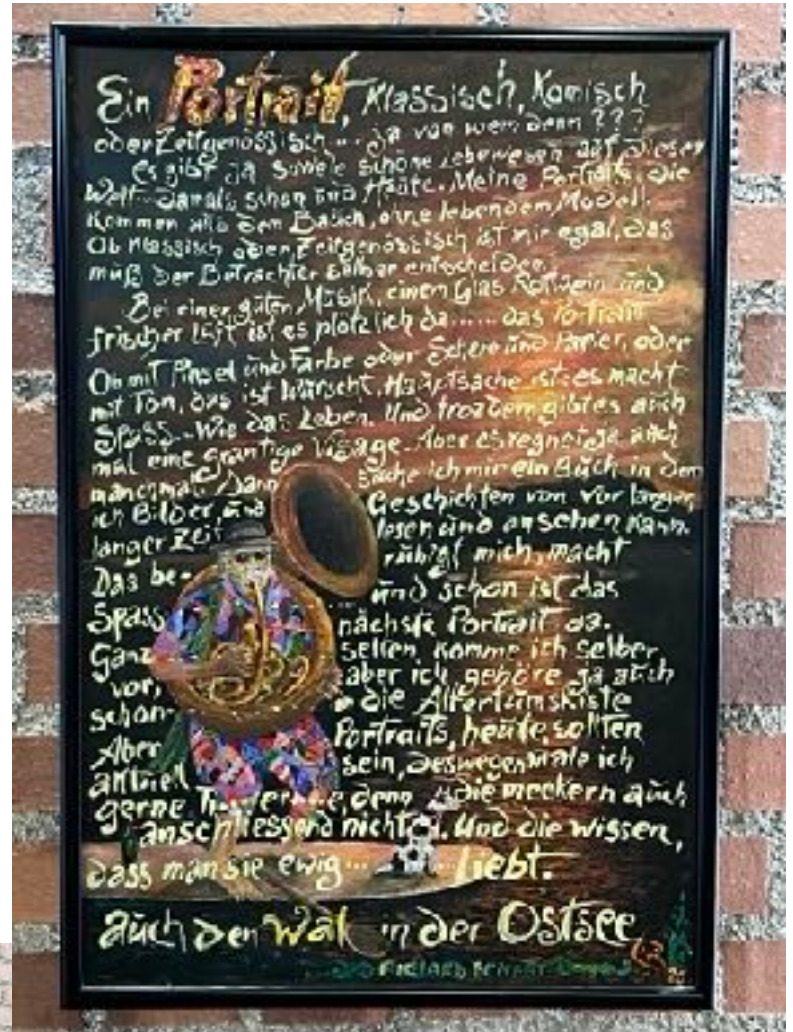 Ein Portrait, Klassisch, Komisch
oder Zeitgenössisch... Ja von wem denn ???
Es gibt ja soviele schöne Lebewesen auf dieser
Welt. Damals schon und Heute. Meine Portraits, die
kommen aus dem Bauch, ohne lebendem Modell.
Ob Klassisch oder Zeitgenössisch ist mir egal, das
muß der Betrachter selber entscheiden.
Bei einer guten Musik, einem Glas Rotwein und
frischer Luft ist es plötzlich da...... das Portrait
Ob mit Pinsel und Farbe oder Schere und Papier, oder
mit Ton, das ist Wurscht, Hauptsache ist: es macht
Spass.. Wie das Leben. Und trozdem gibt es auch
mal eine grantige Visage. Aber es regnet ja auch
manchmal. Dann suche ich mir ein Buch in dem
ich Bilder, und Geschichten von vor langer,
langer Zeit lesen und ansehen kann.
Das be- ruhigt mich, macht
Spass und schon ist das
nächste Portrait da.
Ganz selten, komme ich selber
vor, aber ich gehöre ja auch
schon die Altertumskiste
Aber Portraits, heute, sollten
aktuell sein, deswegen male ich
gerne denn die meckern auch
anschliessend nicht. Und die wissen,
dass man sie ewig... ...liebt.
auch den Wal in der Ostsee